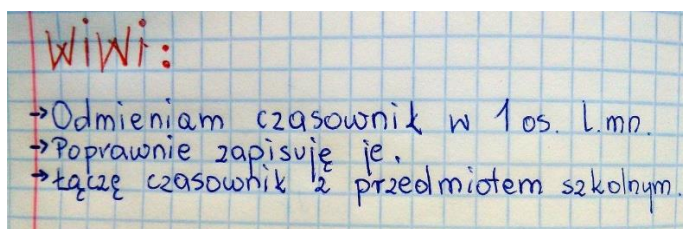 WiWi:
→Odmieniam czasownik w 1 os. l.mn.
→Poprawnie zapisuję je.
→Łączę czasownik z przedmiotem szkolnym.